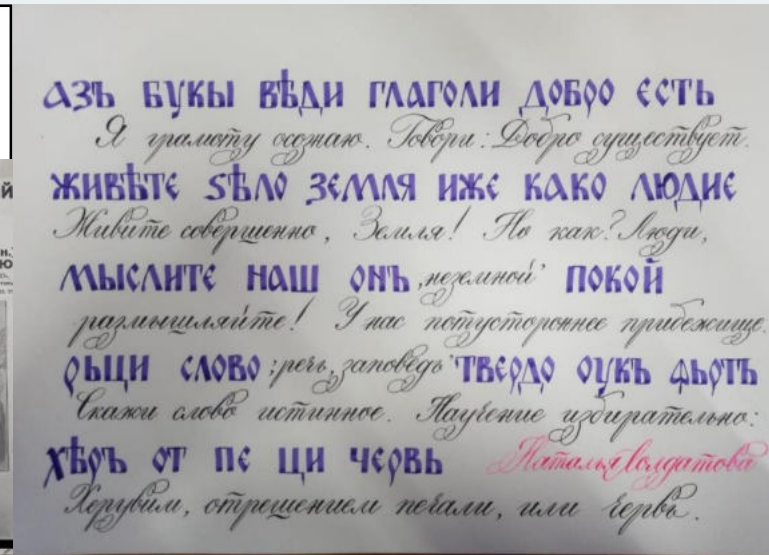 азъ букы вѣди глаголи добро єсть
Я грамоту осознаю. Говори: Добро существует.
живѣте ѕѣло земля иже како людие
Живите совершенно, Земля! Но как? Люди,
мыслите наш онъ ,неземной' покой
размышляйте! У нас потустороннее прибежище.
рьци слово ;речь, заповедь' твердо оукъ фьртъ
Скажи слово истинное. Научение избирательно:
хѣръ от пе ци червь Наталья Солдатова
Херувим, отрешением печали, или червь.